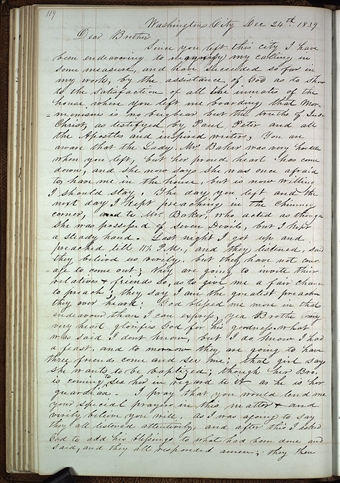 119
Washington City Dec 24th 1839
Dear Brother
Since you left this city I have
been endeavoring to magnify my calling in
some measure, and have succeeded so far in
my work, by the assistance of God as to show
to the satisfaction of all the inmates of the
house where you left me boarding that Mor-
=monism is no bugbear but the truths of Jesus
Christ, as testifyed by Paul, Peter and all
the Apostles and inspired writers, You are
aware that the Lady Mrs Baker was very hostile
when you left, but her proud heart has come
down, and she now says she was once afraid
to have me in the house, but is more willing
I should stay. The day you left and the
next day I kept preaching in the chimney
corner, to Mrs Baker, who acted as though
she was possessed of seven Devils, but I kept
a steady hand. Last night I got up and
preached till 11 P.M., and they listened, said
they believed us verily. but they have not cour-
age to come out; they are going to invite their
relatives & friends so as to give me a fair chance
to preach; they say I am the greatest preacher
they ever heard. God blessed me more in that
endeavour than I can express, yea Brother my
very heart glorifies God for his goodness. what
was said I dont know, but I do know I had
a feast, and to morrow they are going to have
three friends come and see me; that girl says
she wants to be baptized, though her Bro.
is coming to see her in regard to it as he is her
guardian. I pray that you would lend me
your special prayers in this matter & and
verily believe you will. as I was agoing to say
they all listened attentively, and after this I asked
God to add his blessings to what had been done and
said, and they all responded amen; they then